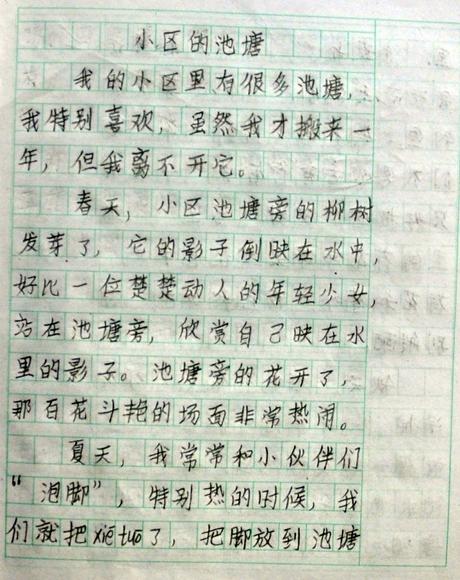 小区的池塘
我的小区里有很多池塘，
我特别喜欢，虽然我才搬来一
年，但我离不开它。
春天，小区池塘旁的柳树
发芽了，它的影子倒映在水中，
好比一位楚楚动人的年轻少女，
站在池塘旁，欣赏自己映在水
里的影子。池塘旁的花开了，
那百花斗艳的场面非常热闹。
夏天，我常常和小伙伴们
“泡脚”，特别热的时候，我
们就把xié tuō了，把脚放到池塘